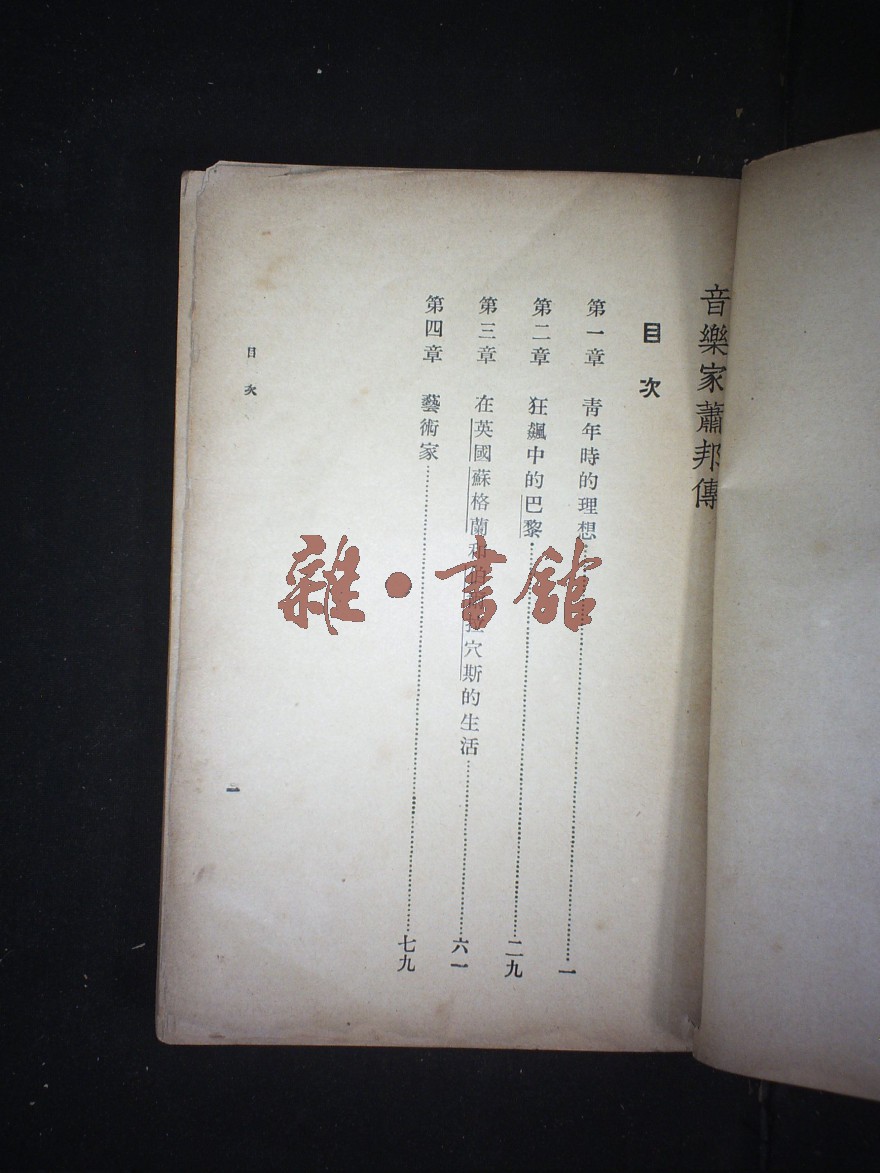 音樂家蕭邦傳
目次
第一章 青年時的理想……一
第二章 狂飆中的巴黎……二九
第三章 在英國蘇格蘭和伯 拉穴斯的生活……六一
第四章 藝術家……七九
目次
一
雜·書館